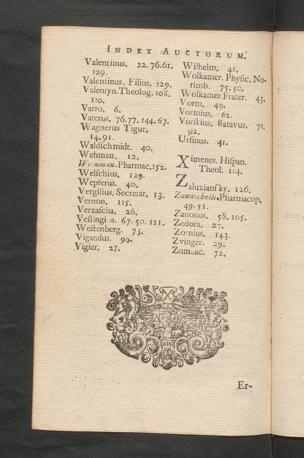 INDEX AUCTORUM.
Valentinus. 22. 76. 61.
129.
Valentinus. Filius. 129.
Valentyn. Theolog. 108.
110.
Varro. 6.
Vaterus. 76. 77. 144. 67.
Wagnerus Tigur.
14. 91.
Waldschmidt. 40.
Wehman. 12.
Pharmac. 152.
Welschius. 129.
Wepferus. 40.
Vergilius, Secretar. 13.
Vernon. 115.
Verzascha. 26.
Veslingius. 67. 50. 111.
Westenberg. 73.
Vigandus. 90.
Vigier. 27.
Wilhelm. 41.
Wolkamer. Physic. No-
rimb. 75. 50.
Wolkamer Frater. 43.
Vorm. 49.
Vormius. 62.
Vorstius, Batavus. 71.
92.
Ursinus. 41.
Ximener. Hispan.
Theol. 114.
Zaluziansky. 126.
Zannichelli. Pharmacop.
49. 51.
Zanonus. 58. 105.
Zedora. 27.
Zornius. 143.
Zvinger. 29.
72.
Er-